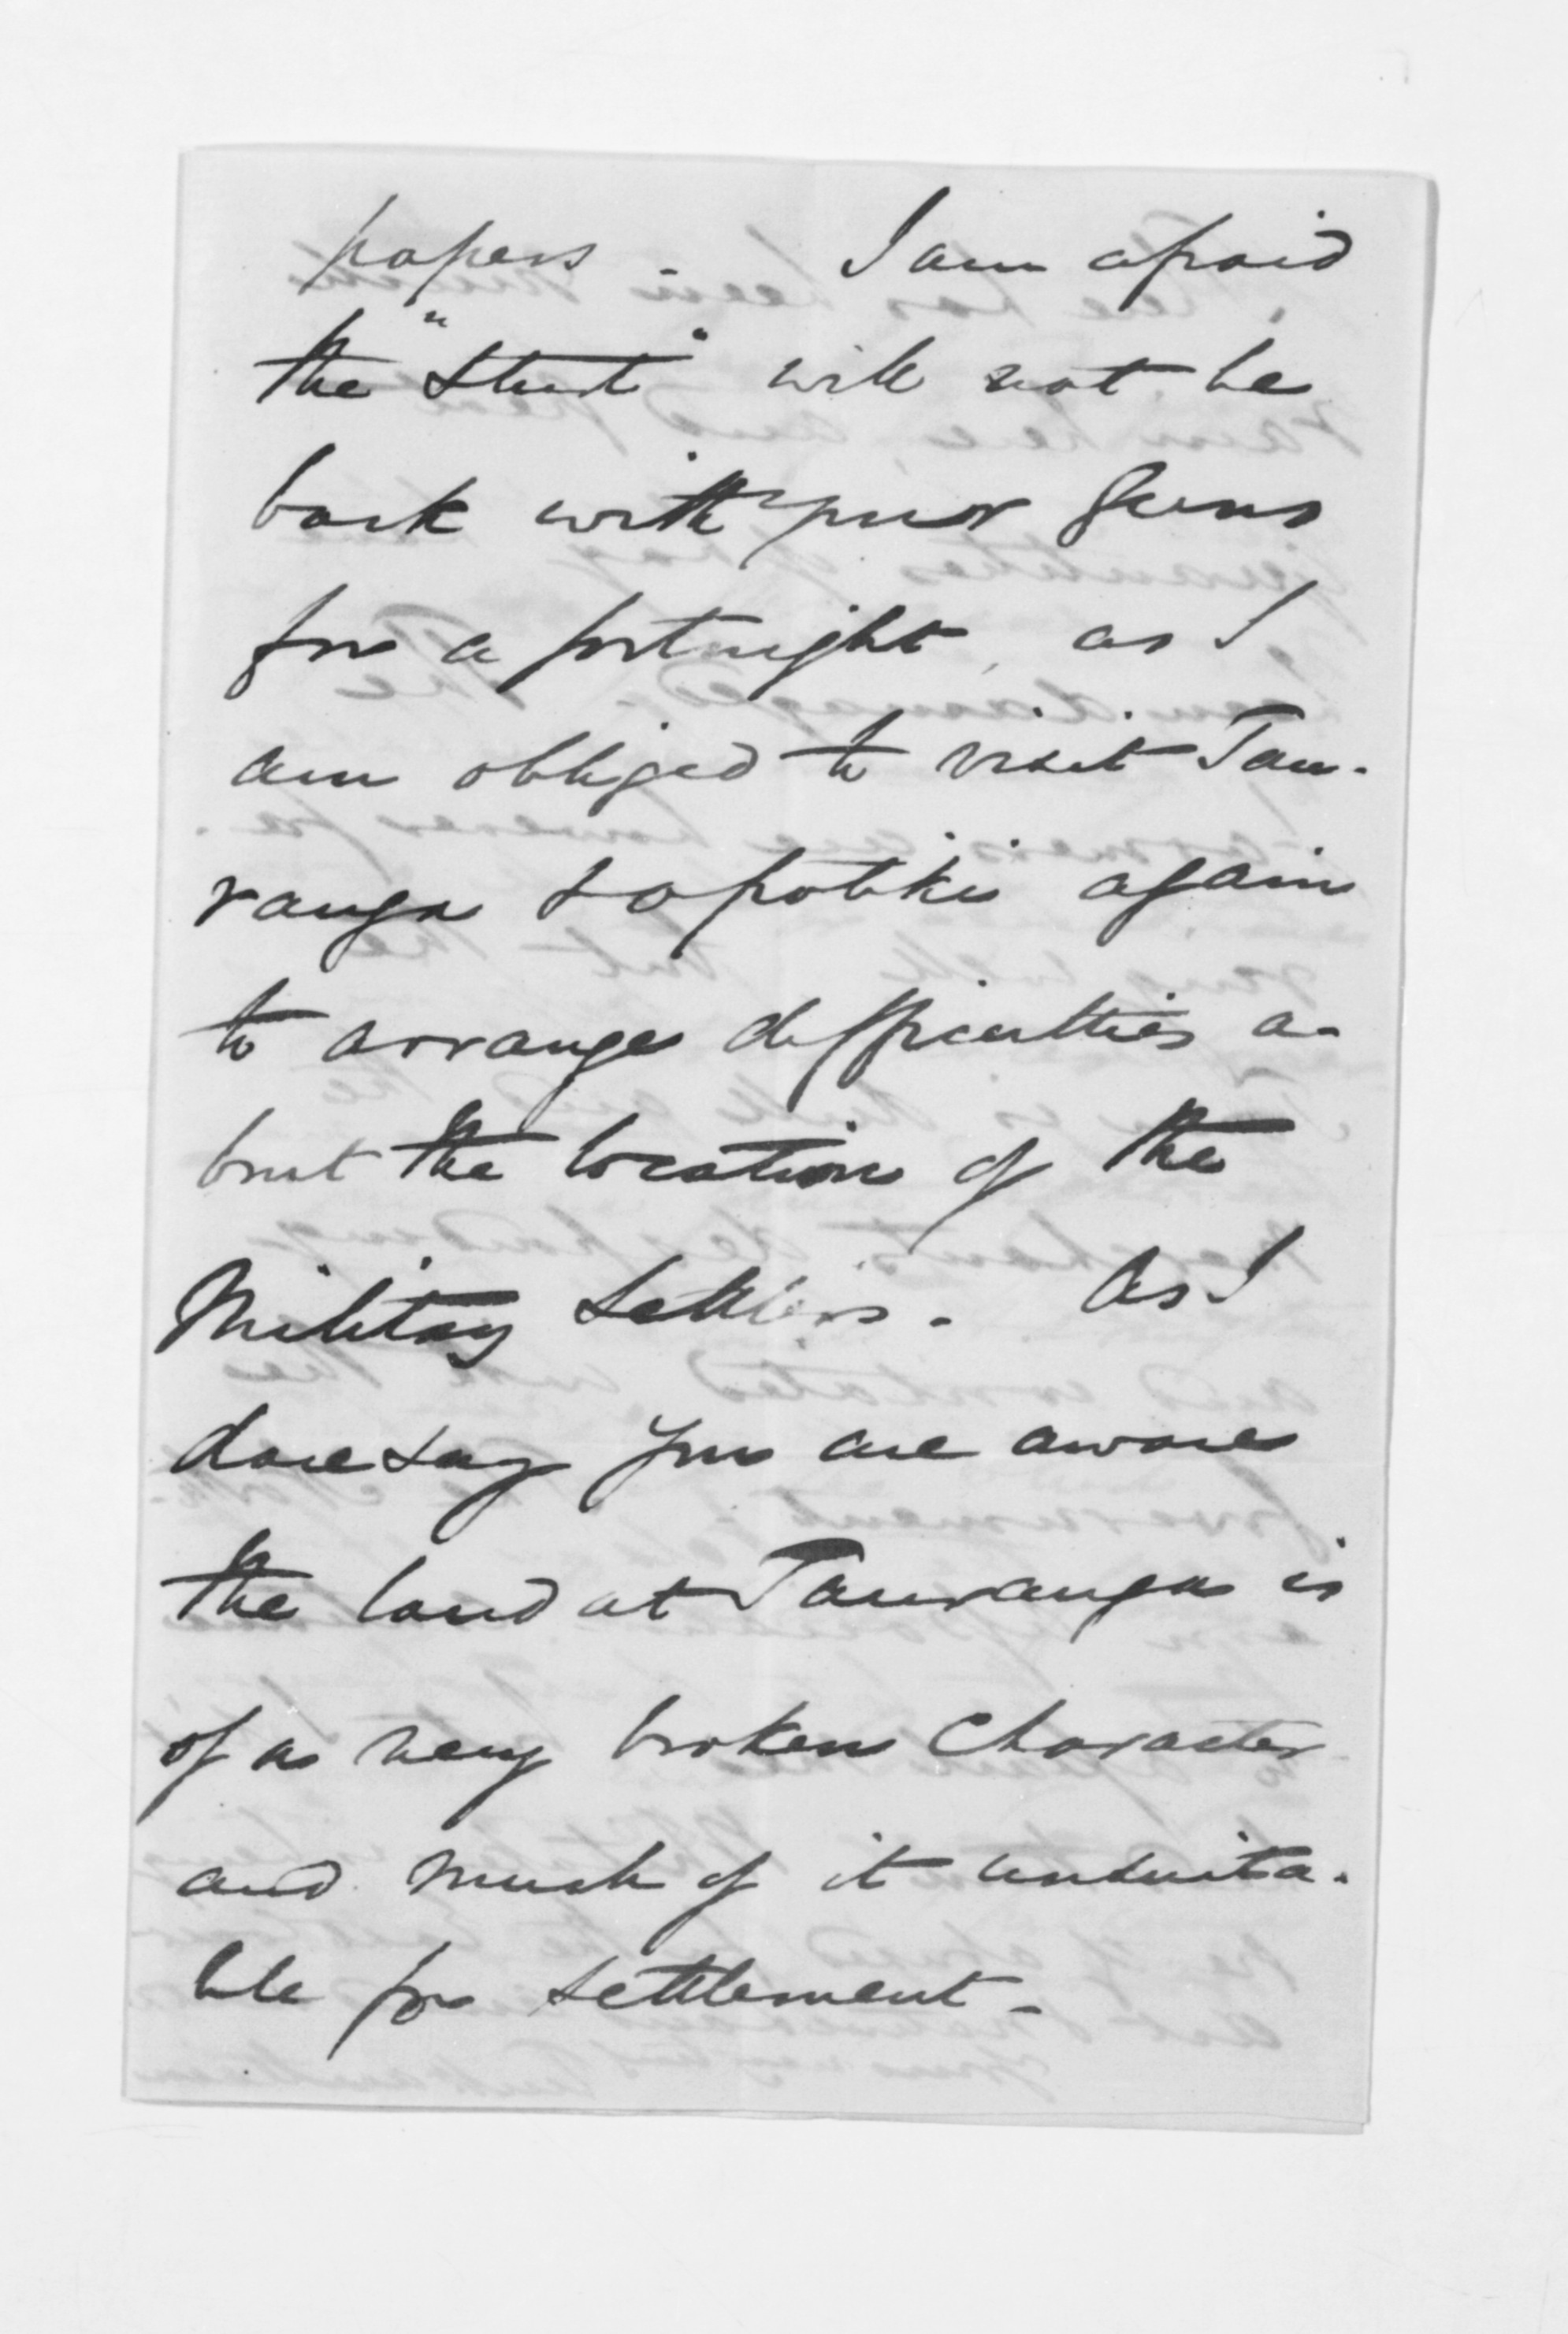 papers. I am afraid
the "Sturt" will not be
back with your Guns
for a fortnight, as I
am obliged to visit Tau-
ranga & Opotiki again
to arrange difficulties a-
bout the location of the
Military Settlers. As I
dare say you are aware
the land at Tauranga is
of a very broken character
and much of it unsuita-
ble for settlement.